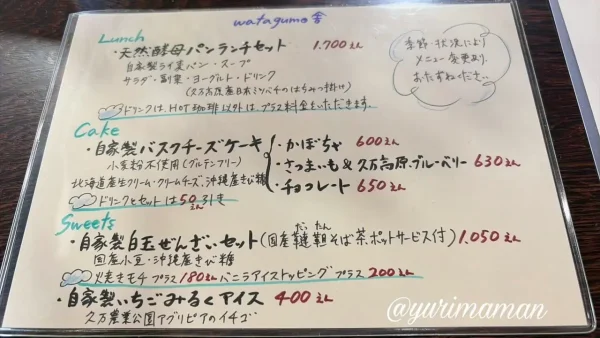 watagumo舎
Lunch
・天然酵母パンランチセット 1.700えん
自家製ライ麦パン・スープ
サラダ・副菜・ヨーグルト・ドリンク
(久万高原産日本ミツバチのはちみつ掛け)
ドリンクは、HOT珈琲以外は、プラス料金をいただきます。
季節・状況により
メニュー変更あり。
おたずねください。
Cake
・自家製バスクチーズケーキ
小麦粉不使用(グルテンフリー)
北海道産生クリーム・クリームチーズ、沖縄産きび糖
ドリンクとセットは50えん引き
・かぼちゃ 600えん
・さつまいも&久万高原ブルーベリー 630えん
・チョコレート 650えん
Sweets
・自家製白玉ぜんざいセット(国産韃靼そば茶、ポットサービス付) 1.050えん
だったん
国産小豆・沖縄産きび糖
焼きモチ プラス180えん バニラアイストッピング プラス200えん
・自家製いちごみるくアイス 400えん
久万農業公園アグリピアのイチゴ
@yurimaman